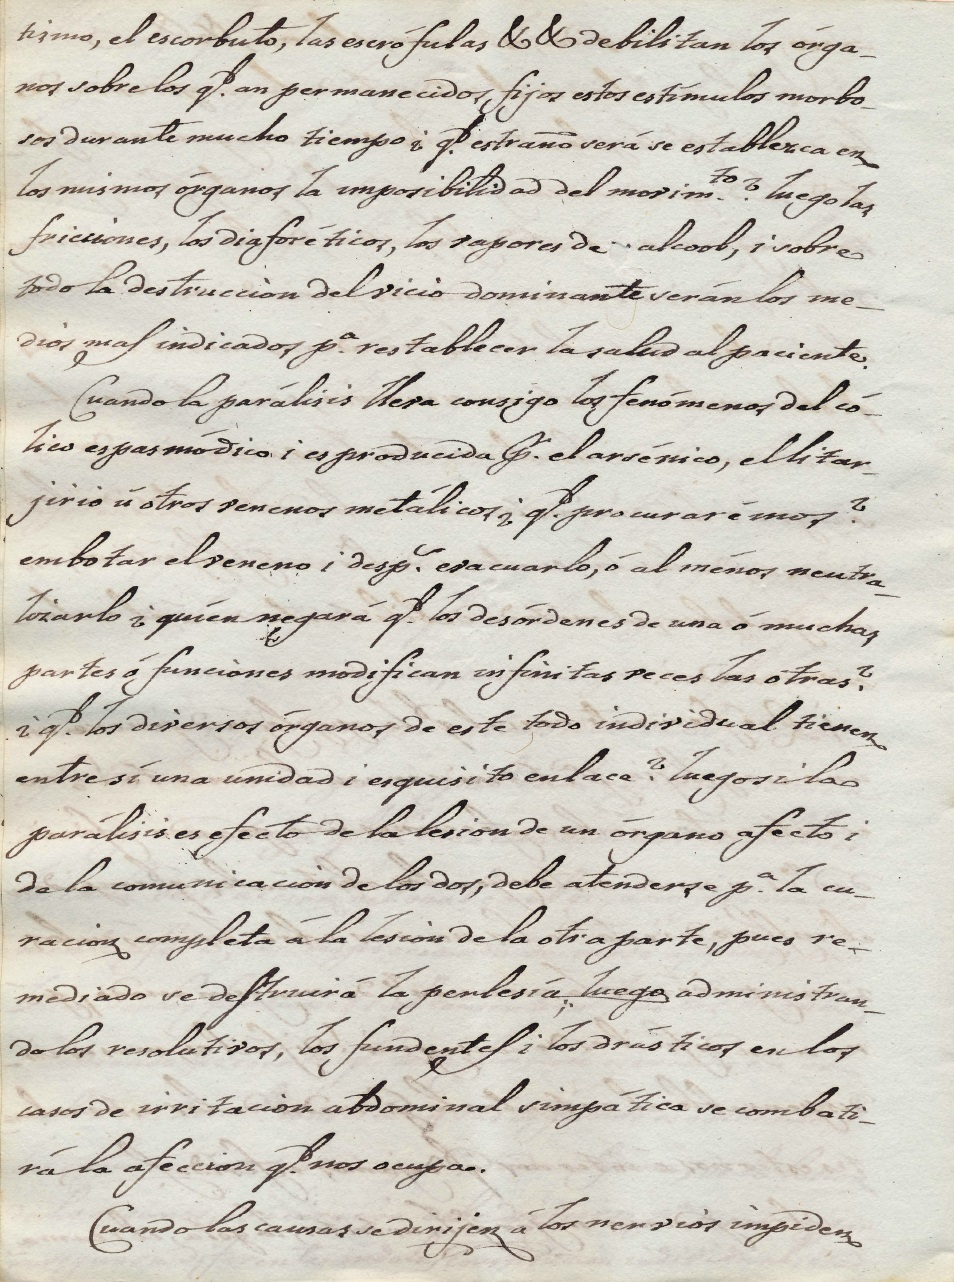 tismo, el escorbuto, las escrófulas && debilitan los órga-
nos sobre los q.e an permanecidos fijos estos estímulos morbo-
sos durante mucho tiempo ¿ q.e estraño será se establezca en
los mismos órganos la imposibilidad del movim.to? luego las
fricciones, los diaforéticos, los vapores de alcool, i sobre
todo la destruccion del vicio dominante serán los me-
dios mas indicados p.a restablecer la salud al paciente.
Cuando la parálisis lleva consigo los fenómenos del có-
lico espasmódico i es producida p.r el arsénico, el litar-
jirio ú otros venenos metálicos, ¿ q.e procurarémos?
embotar el veneno i desp.s evacuarlo, ó al ménos neutra-
lizarlo ¿ quién negará q.e los desórdenes de una ó muchas
partes ó funciones modifican infinitas veces las otras?
¿ q.e los diversos órganos de este todo individual tienen
entre sí una unidad i esquisito enlace? luego si la
parálisis es efecto de la lesion de un órgano afecto i
de la comunicacion de los dos, debe atenderse p.a la cu-
racion completa á la lesion de la otra parte, pues re-
mediado se destruirá la perlesía; luego administran-
do los resolutivos, los fundentes i los drásticos en los
casos de irritacion abdominal simpática se combati-
rá la afeccion q.e nos ocupa.
Cuando las causas se dirijen á los nervios impiden